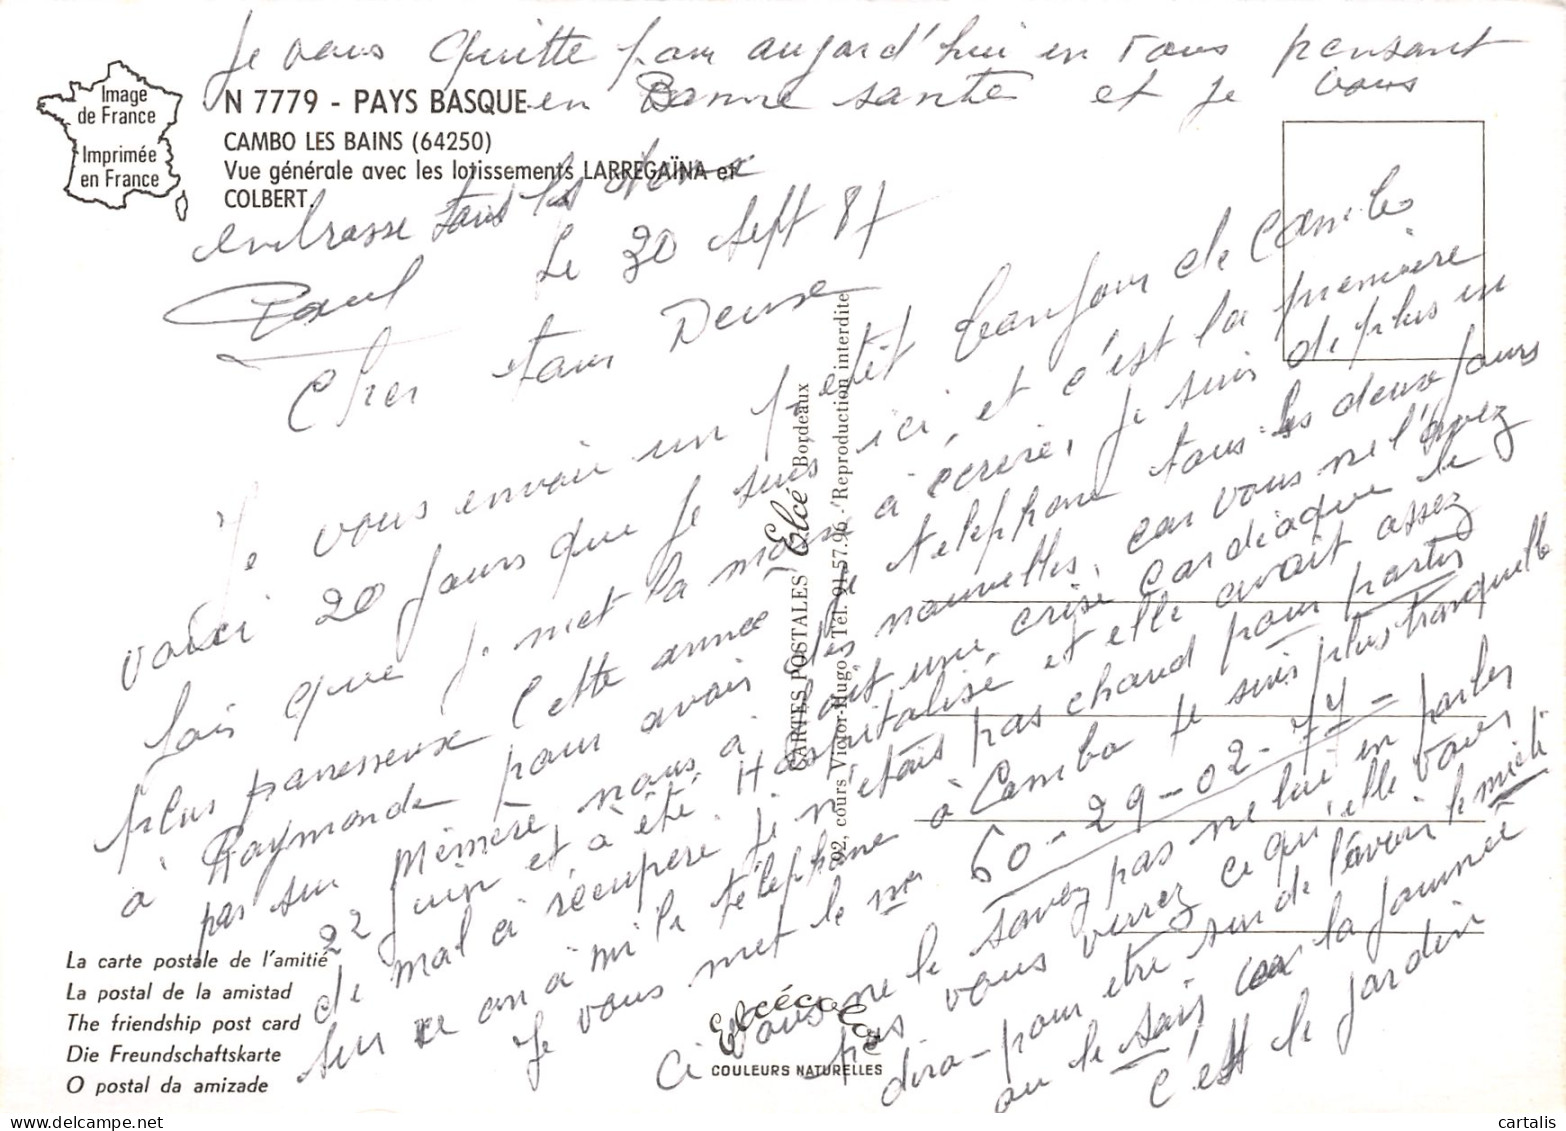 Je vous quitte pour aujourd'hui en vous pensant
en Bonne santé et je vous
embrasse tous les deux
Paul
Image
de France
Imprimée
en France
N 7779 - PAYS BASQUE
CAMBO LES BAINS (64250)
Vue générale avec les lotissements LARREGAÏNA et
COLBERT.
Le 30 Sept 87
Cher tous Denise
Je vous envoie un petit bonjour de Cambo
voici 20 jours que je suis ici, et c'est la première
fois que je met la main à écrire, je suis de plus en
plus paresseux cette année je telephone tous les deux jours
à Raymonde pour avoir des nouvelles, car vous ne l'avez
pas su mémère nous à fait une crise cardiaque le
22 juin et à été Hospitalisé et elle avait assez
de mal à récupéré je n'étais pas chaud pour partir
sur ce on à mi le téléphone à Cambo je suis plus tranquille
Je vous met le n° 60-29-02-77 -
Ci vous ne le savez pas ne lui en parler
pas vous verrez ce qu'elle vous
dira - pour être sur de l'avoir le midi
ou le soir car la journée
c'est le jardin
CARTES POSTALES Elcé Bordeaux
92, cours Victor-Hugo - Tél. 91.57.96 - Reproduction interdite
La carte postale de l'amitié
La postal de la amistad
The friendship post card
Die Freundschaftskarte
O postal da amizade
Elcécolor
COULEURS NATURELLES
cartalis